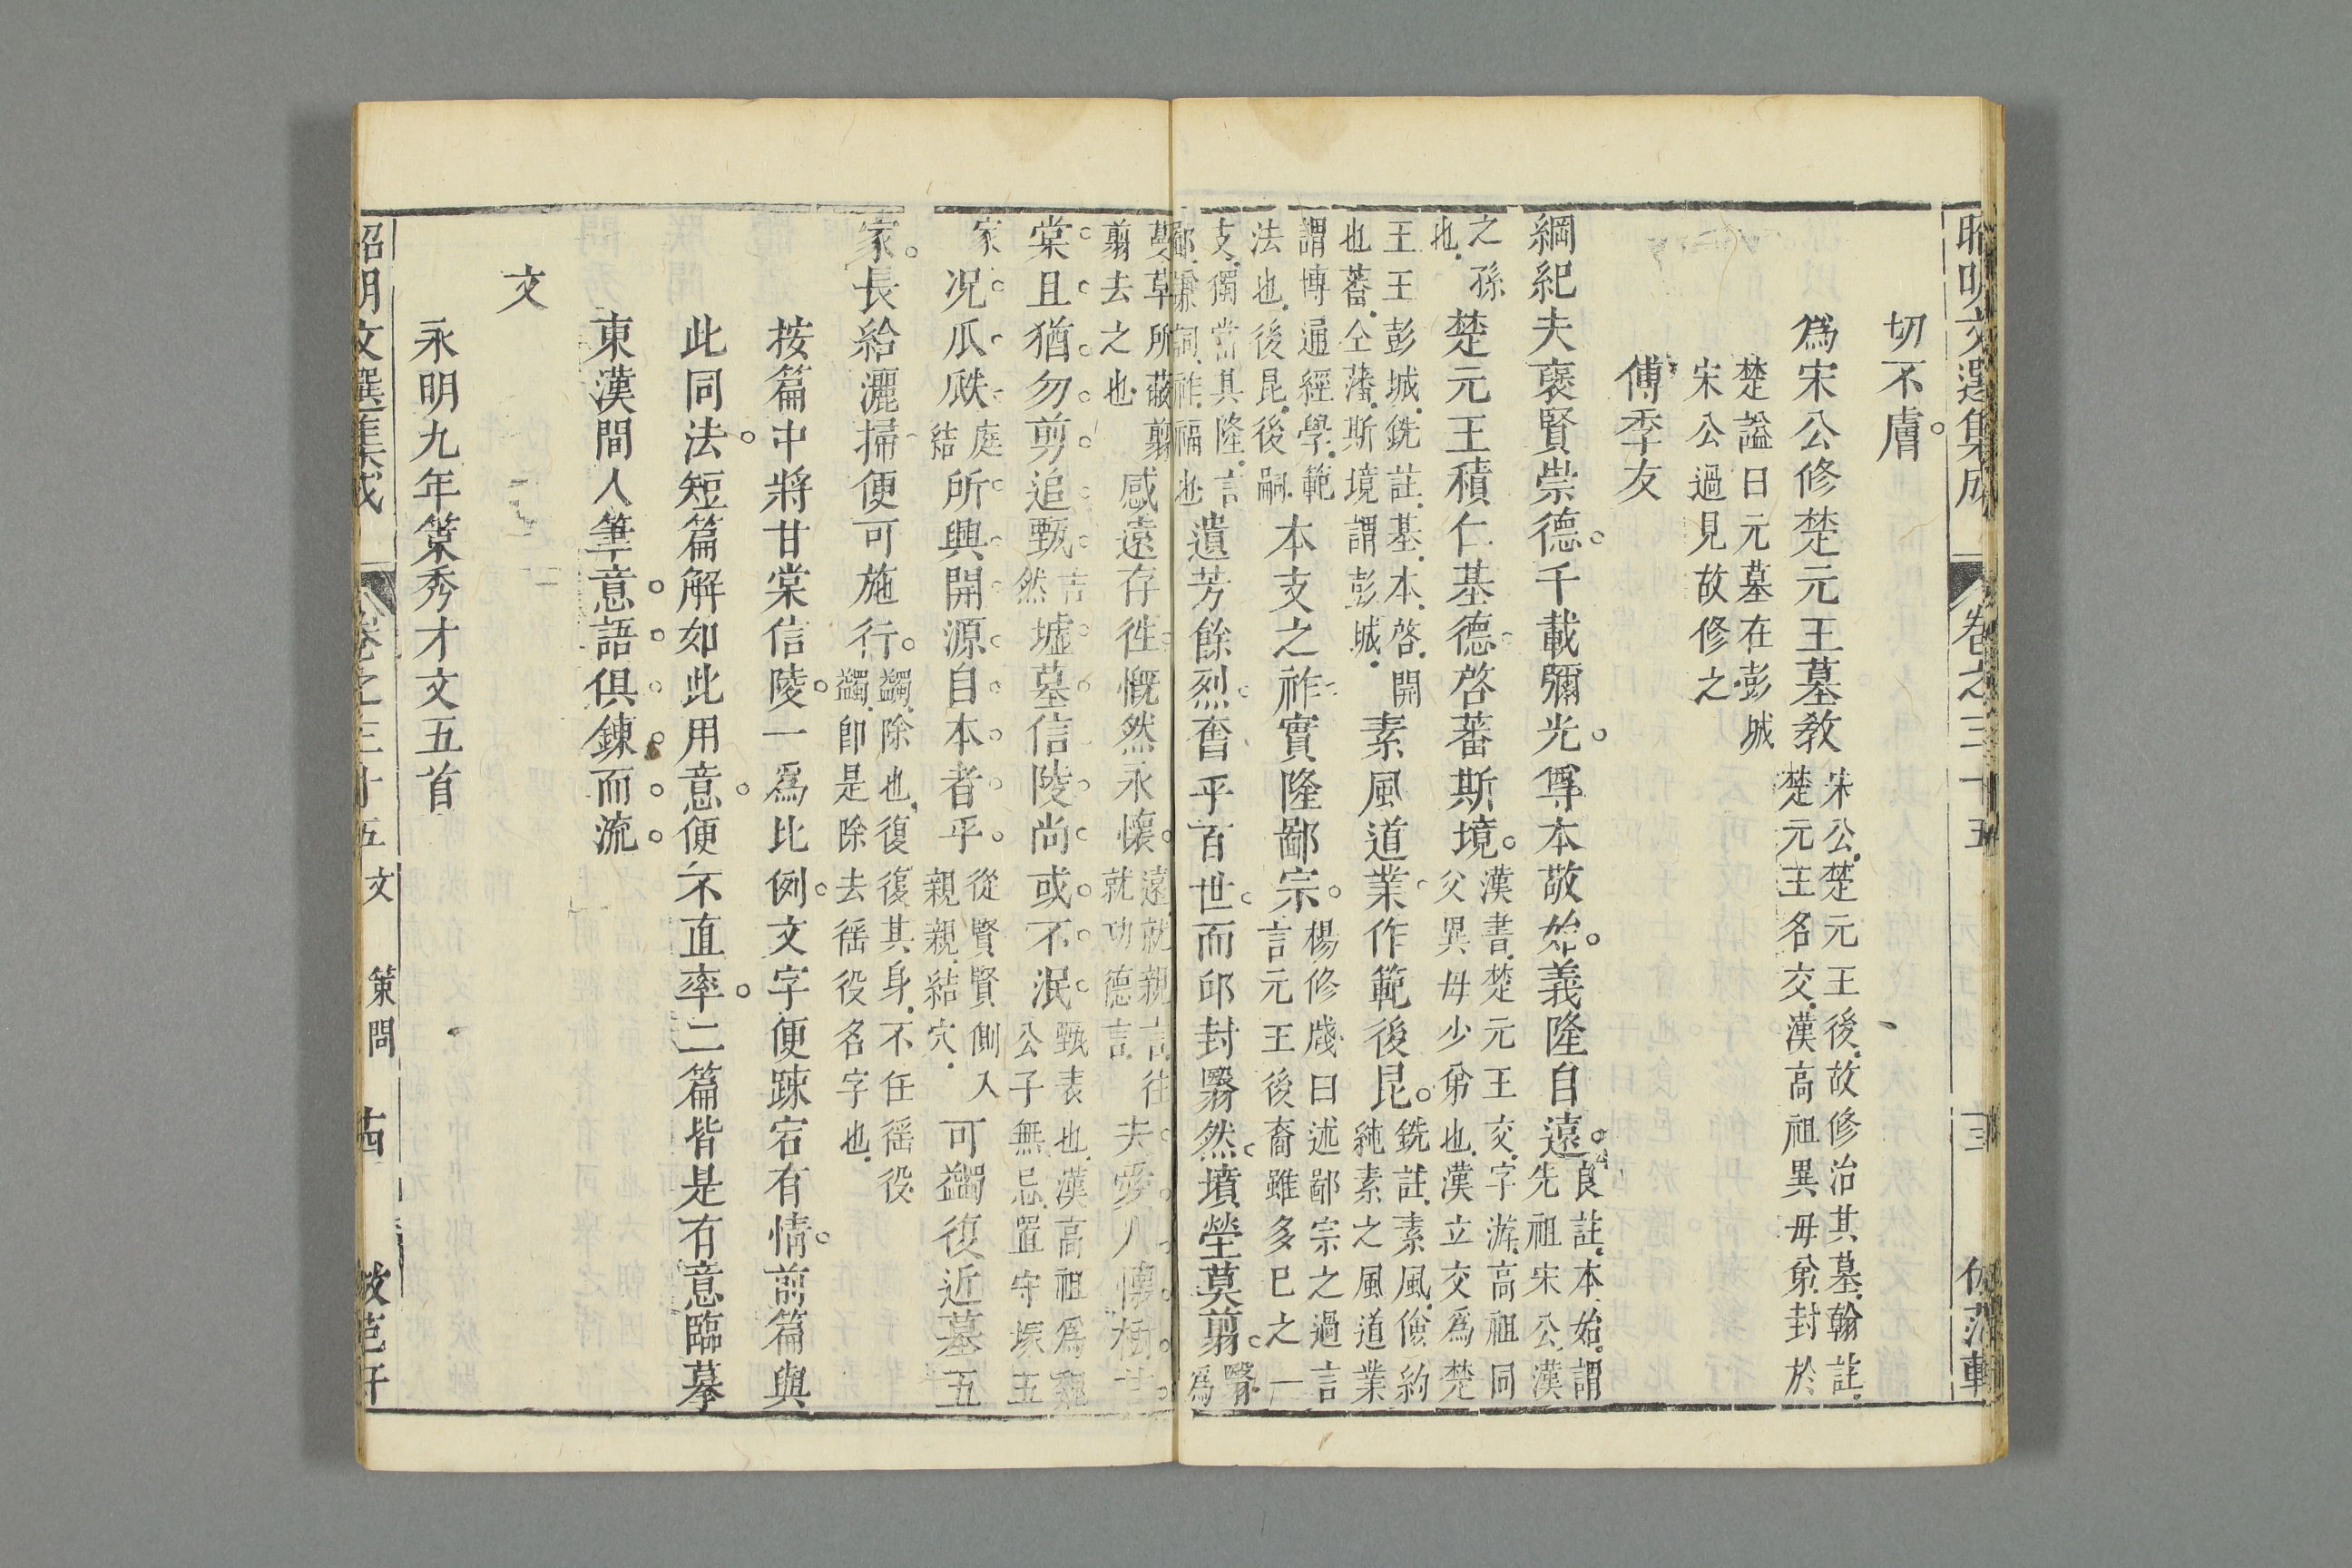 昭明文選集成 卷之三十五 三 倣范軒
切不膚。
爲宋公修楚元王墓敎 宋公楚元王後故修治其墓翰註
楚元王名交漢高祖異母弟封於
楚謚曰元墓在彭城
宋公過見故修之
傅季友
綱紀夫褒賢崇德。千載彌光。尊本敬始。義隆自遠。 良註本始謂
先祖宋公漢
之孫
也 楚元王積仁基德啓蕃斯境。 漢書楚元王交字游高祖同
父異母少弟也漢立交爲楚
王王彭城銑註基本啓開
也蕃仝藩斯境謂彭城 素風道業作範後昆。 銑註素風儉約
純素之風道業
謂博通經學範
法也後昆後嗣 本支之祚實隆鄙宗。 楊修牋曰述鄙宗之過言
言元王後裔雖多已之一
支獨當其隆言
鄙謙詞祚福也 遺芳餘烈。奮乎百世。而邱封翳然。墳塋莫翦。 翳
爲
蔓草所蔽翦
翦去之也 感遠存徃。慨然永懷。 遠就親言往
就功德言 夫愛人懷樹甘
棠且猶勿剪追甄 吉
然 墟墓信陵尚或不泯。 甄表也漢高祖爲魏
公子無忌置守塚五
家 况瓜瓞 庭
結 所興開源自本者乎。 從賢賢側入
親親結穴 可蠲復近墓五
家。長給灑掃便可施行。 蠲除也復復其身不任徭役
蠲卽是除去徭役名字也
按篇中將甘棠信陵。一爲比例。文字便踈宕有情。前篇與
此同法。短篇解如此用意。便不直率。二篇皆是有意臨摹
東漢間人筆意。語。俱。鍊。而。流。
文
永明九年策秀才文五首
昭明文選集成 卷之三十五 文 策問 倣范軒